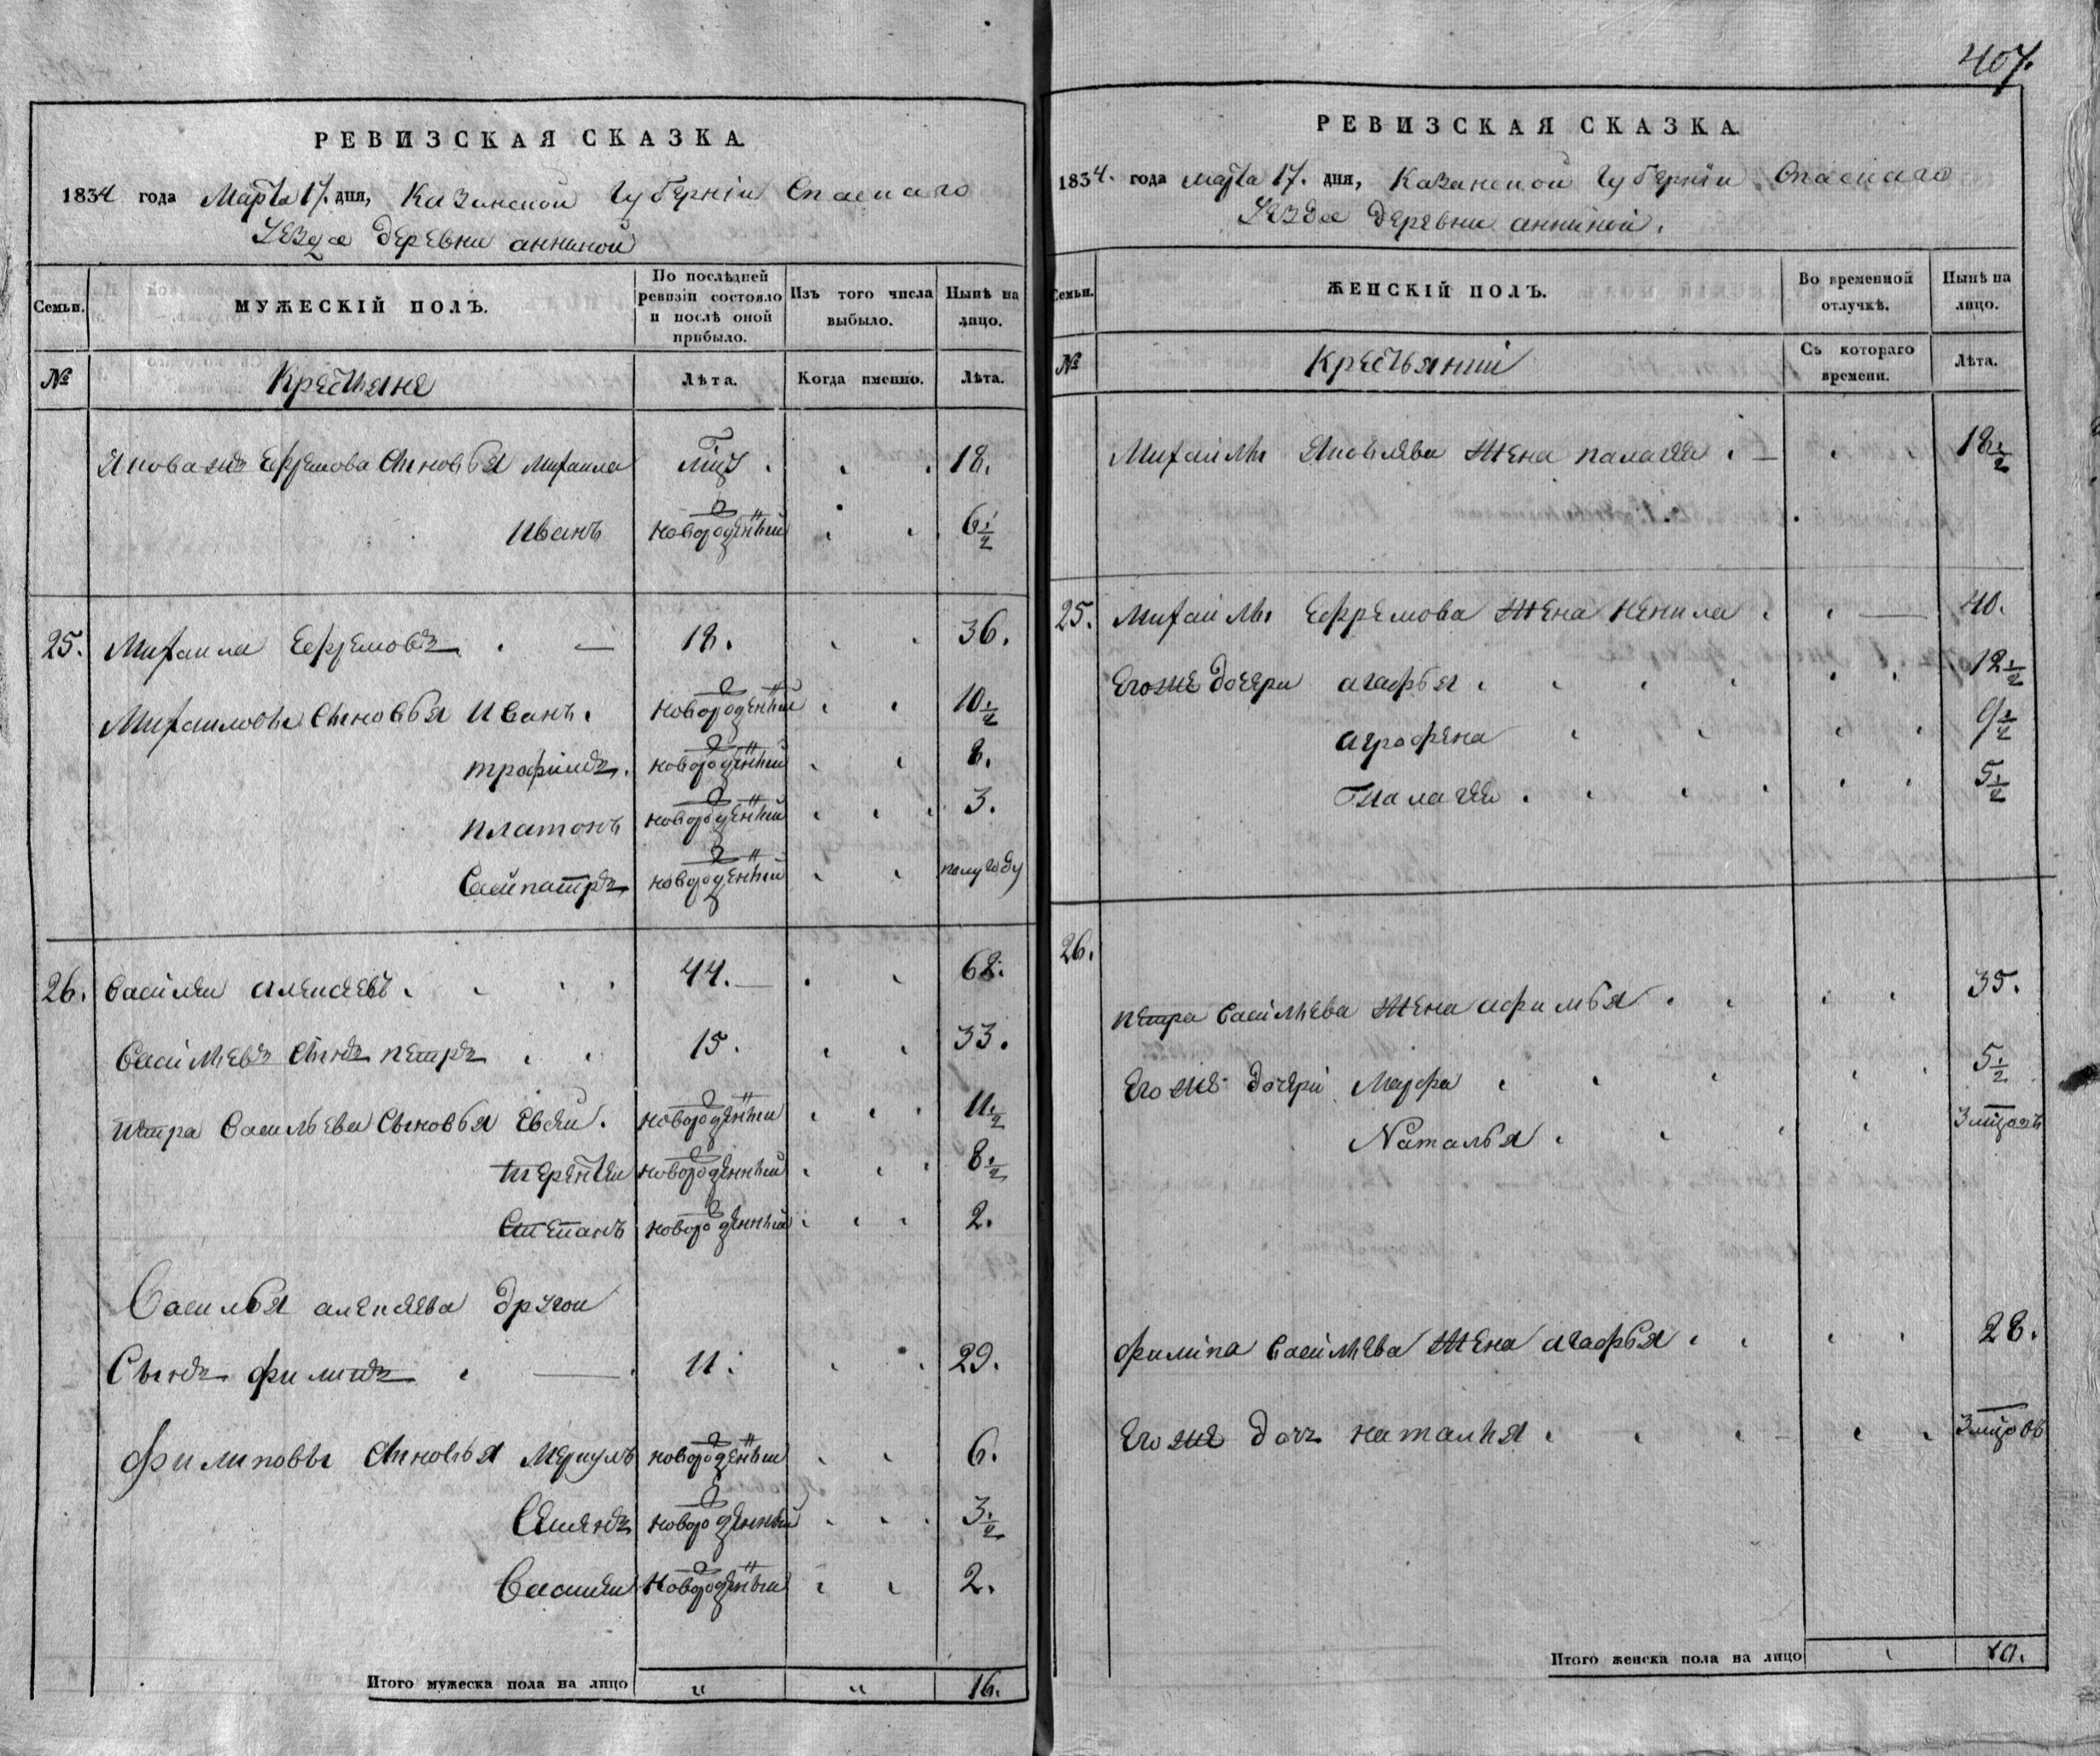 407.
РЕВИЗСКАЯ СКАЗКА.
1834 года Марта 17. дня, Казанской Губерніи Спаскаго
Уезда деревни анниной
Семьи.
МУЖЕСКІЙ ПОЛЪ.
По послѣдней ревизіи состояло и послѣ оной прибыло.
Изъ того числа выбыло.
Нынѣ на лицо.
№
Крестьяне
Лѣта.
Когда именно.
Лѣта.
Якова Ефремова сыновья Михаила . . . 18.
Иванъ новорожденный . . 6 1/2
25. Михаила Ефремовъ . — 18. . . 36.
Михаиловы сыновья Иванъ. новорожденный . . 10 1/2
трофимъ. новорожденный . . 8.
платонъ новорожденный . . . 3.
новорожденный . . полугоду
26. Василеи алексеевъ . . . . 44. — . . 62.
Васильевъ сынъ петръ . . 15. . . 33.
петра Васильева Сыновья Евсеи. новорожденныи . . . 11 1/2
терентеи новорожденныи . . . 8 1/2
Степанъ новорожденныи . . . 2.
Василья алексеева другои
Сынъ филипъ . — 11. . . 29.
Филиповы сыновья Меркулъ новорожденныи . . 6.
Семенъ новорожденный . . . 3 1/2
Василеи Новорожденныи . . 2.
Итого мужеска пола на лицо " " 16.
РЕВИЗСКАЯ СКАЗКА.
1834. года марта 17. дня, Казанской Губерніи Спаскаго
Уезда деревни анниной.
Семьи.
ЖЕНСКІЙ ПОЛЪ.
Во временной отлучкѣ.
Нынѣ на лицо.
№
Крестьянки
Съ котораго времени.
Лѣта.
Михаилы Яковлева жена палагея . — . . 18 1/2
25. Михаилы Ефремова жена ненила . . — 40.
Егоже дочери агафья . . . . . . 12 1/2
аграфена . . . . 9 1/2
Палагея . . . . . . 5 1/2
26.
петра Васильева жена афимья . . . . 35.
Егоже дочери Марфа . . . . . 5 1/2
Наталья . . . . 3 мцовъ
филипа Васильева жена агафья . . . . 28.
Егоже дочь наталия . . . . . 3 мцовъ
Итого женска пола на лицо 10.